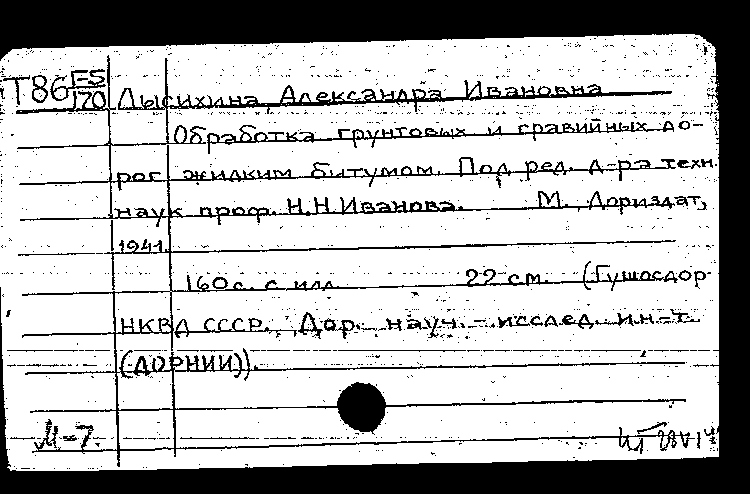 Т86 F-5/170 Лысихина, Александра Ивановна
Обработка грунтовых и гравийных до-
рог жидким битумом. Под ред. д-ра техн.
наук проф. Н.Н.Иванова. М., Дориздат,
1941.
160 с. с илл. 22 см. (Гушосдор
НКВД СССР. Дор. науч.-исслед. ин-т.
(ДОРНИИ)).
М-7.